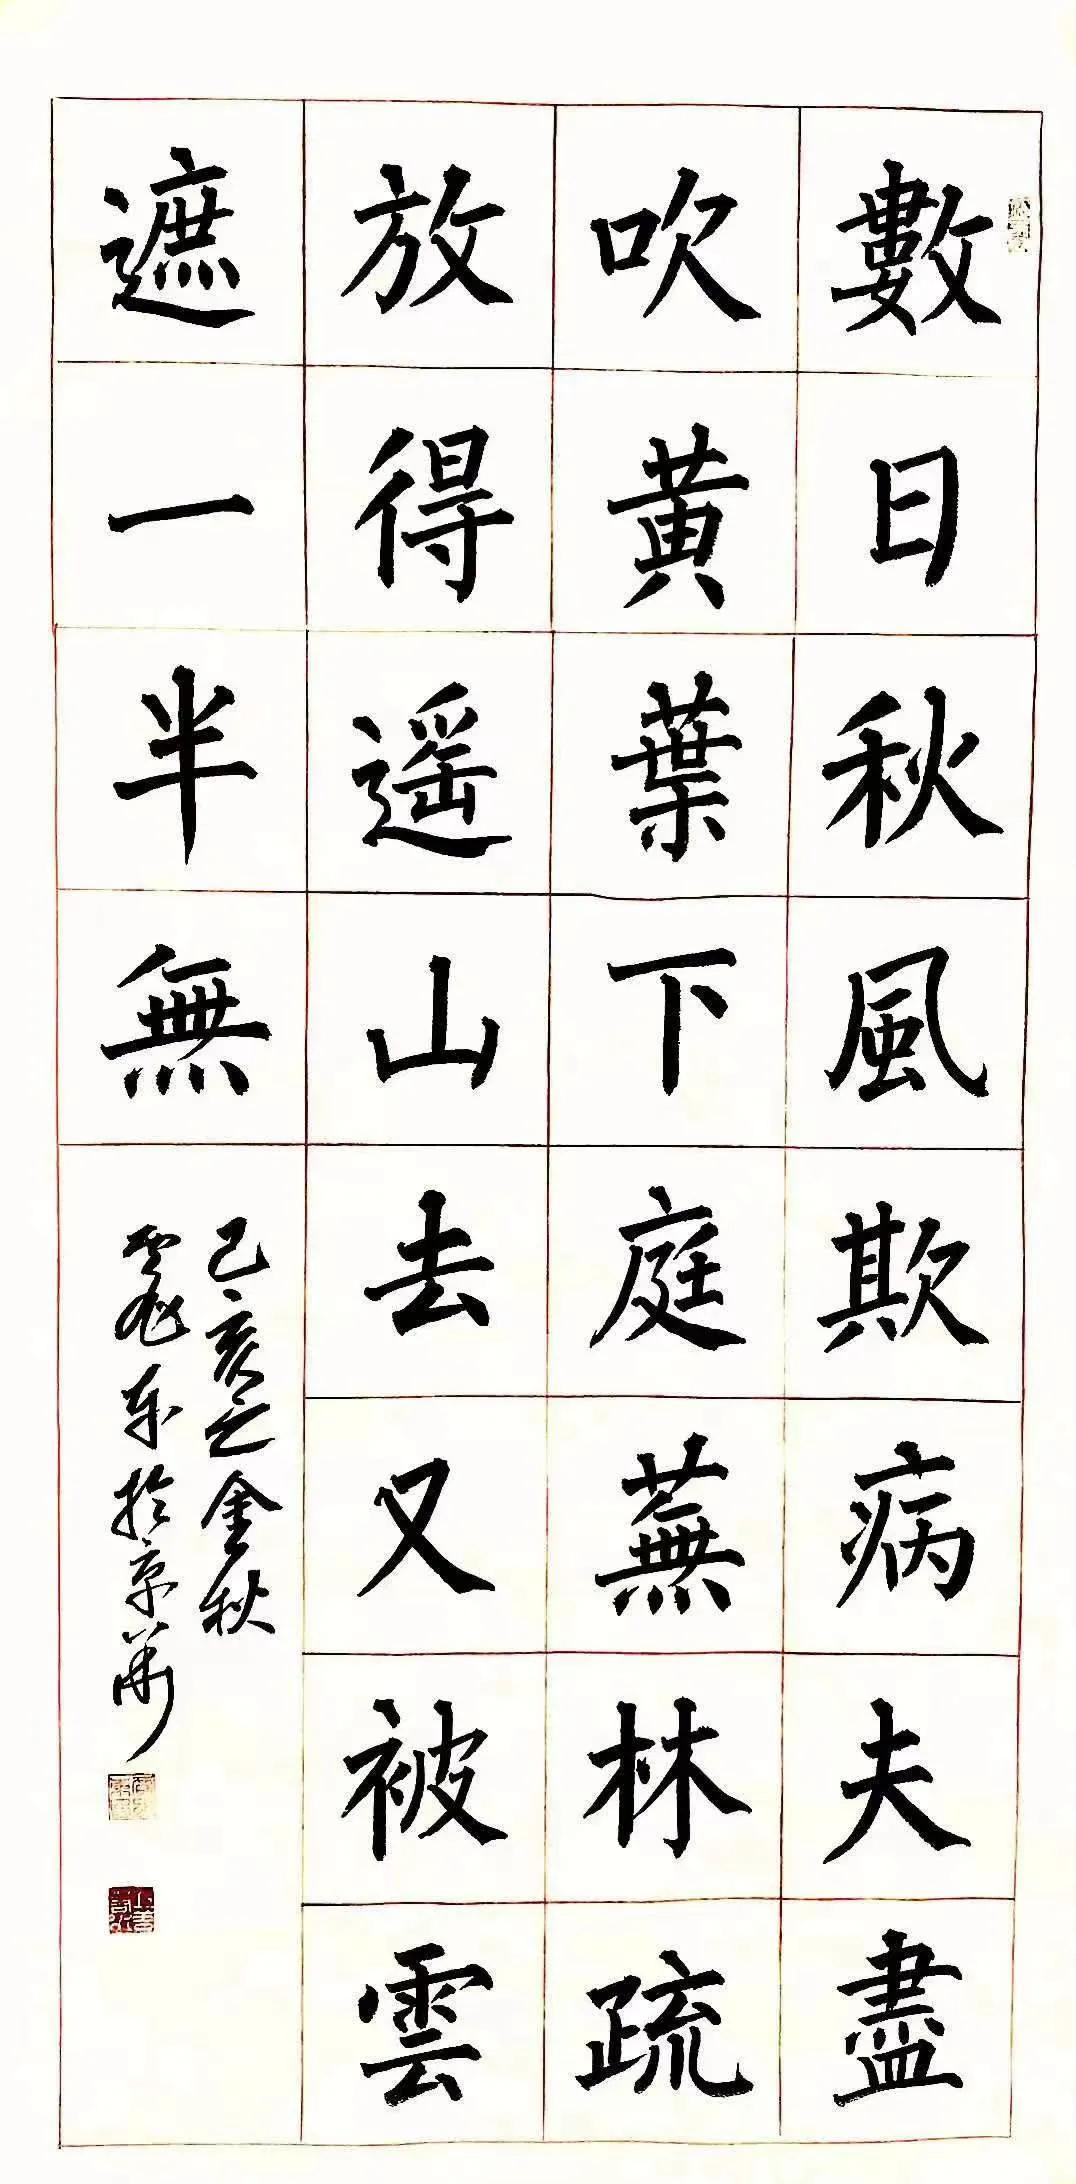 數日秋風欺病夫盡
吹黄葉下庭蕪林疏
放得遥山去又被雲
遮一半無
己亥之金秋
東於京華